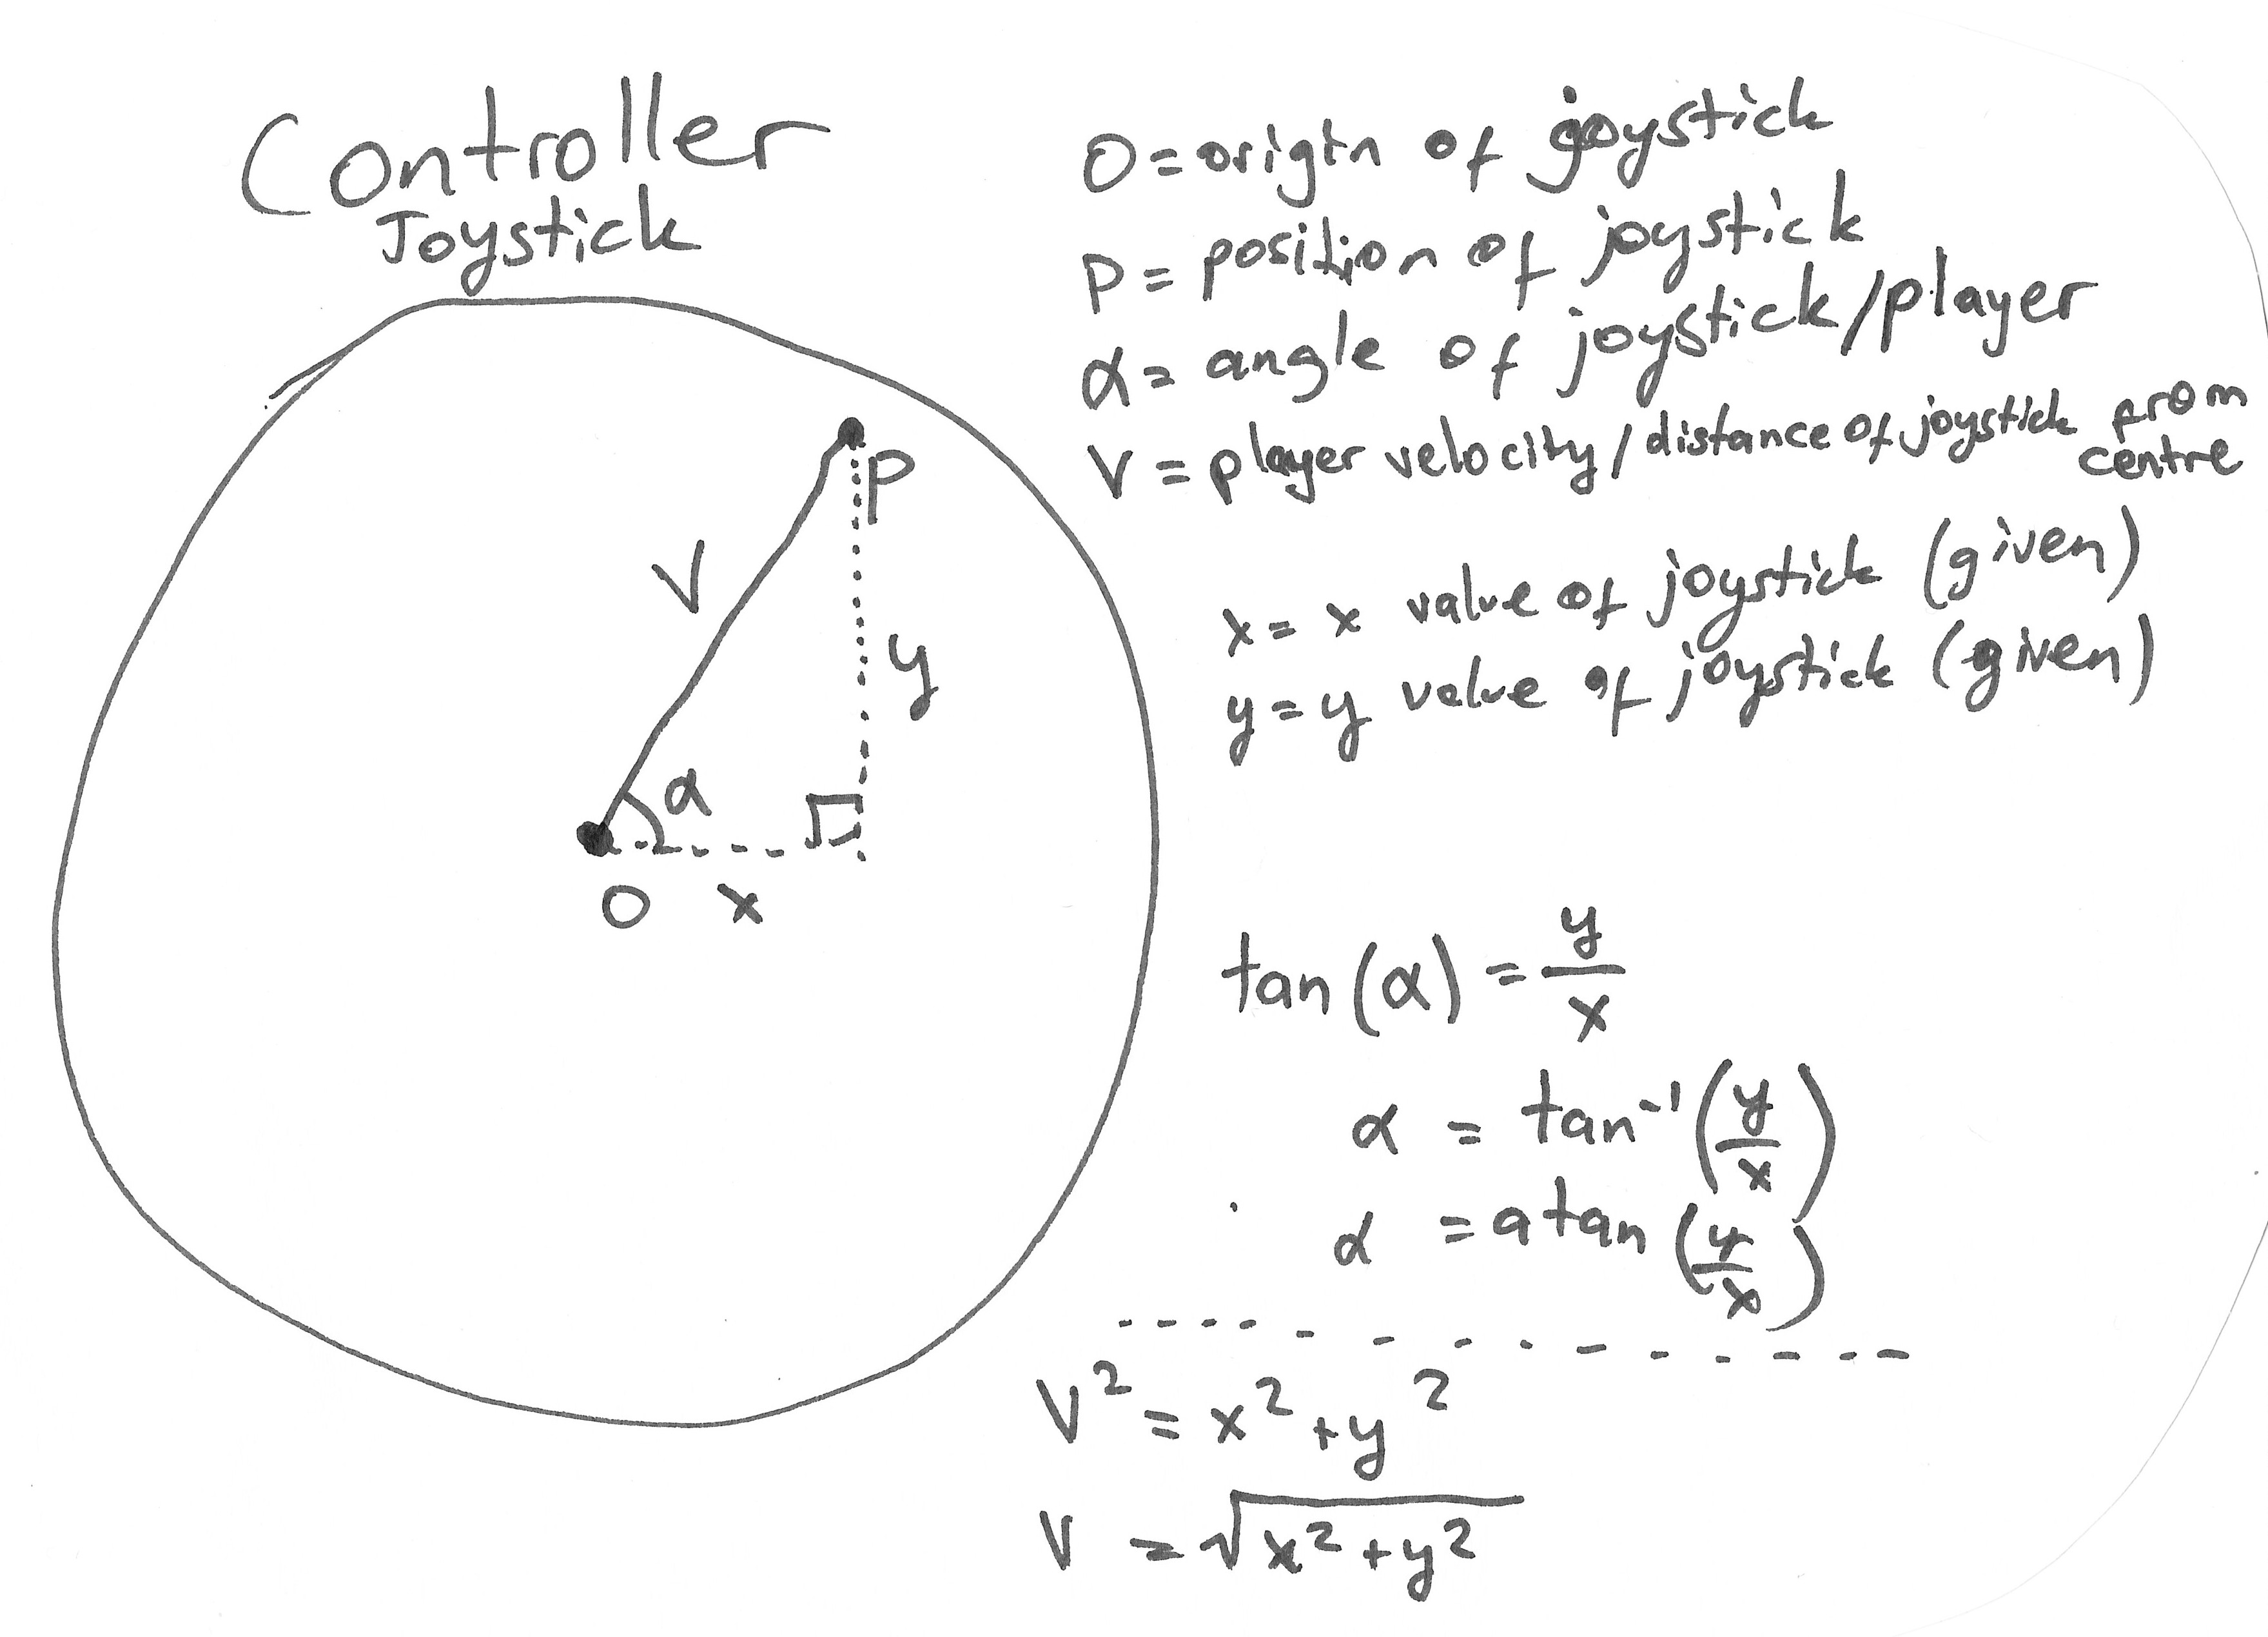 Controller
Joystick
O = origin of joystick
P = position of joystick
α = angle of joystick/player
V = player velocity/distance of joystick from centre
x = x value of joystick (given)
y = y value of joystick (given)
P
V
y
α
O x
tan(α) = y/x
α = tan⁻¹(y/x)
α = atan(y/x)
V² = x² + y²
V = √x² + y²